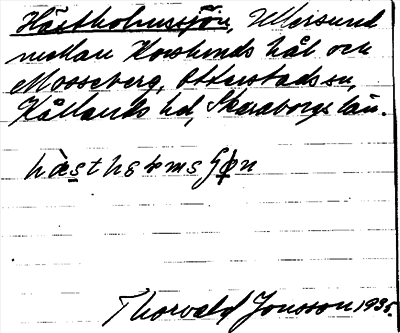 Hästholmssjön, Ullersund
mellan Hovshunds hål och
Mosseberg, Otterstads sn,
Kållands hd, Skaraborgs län.
hàsthɛɤmsʃøn
Thorvald Jonsson 1935.